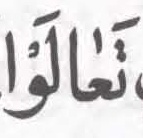 تَعَالَوْا